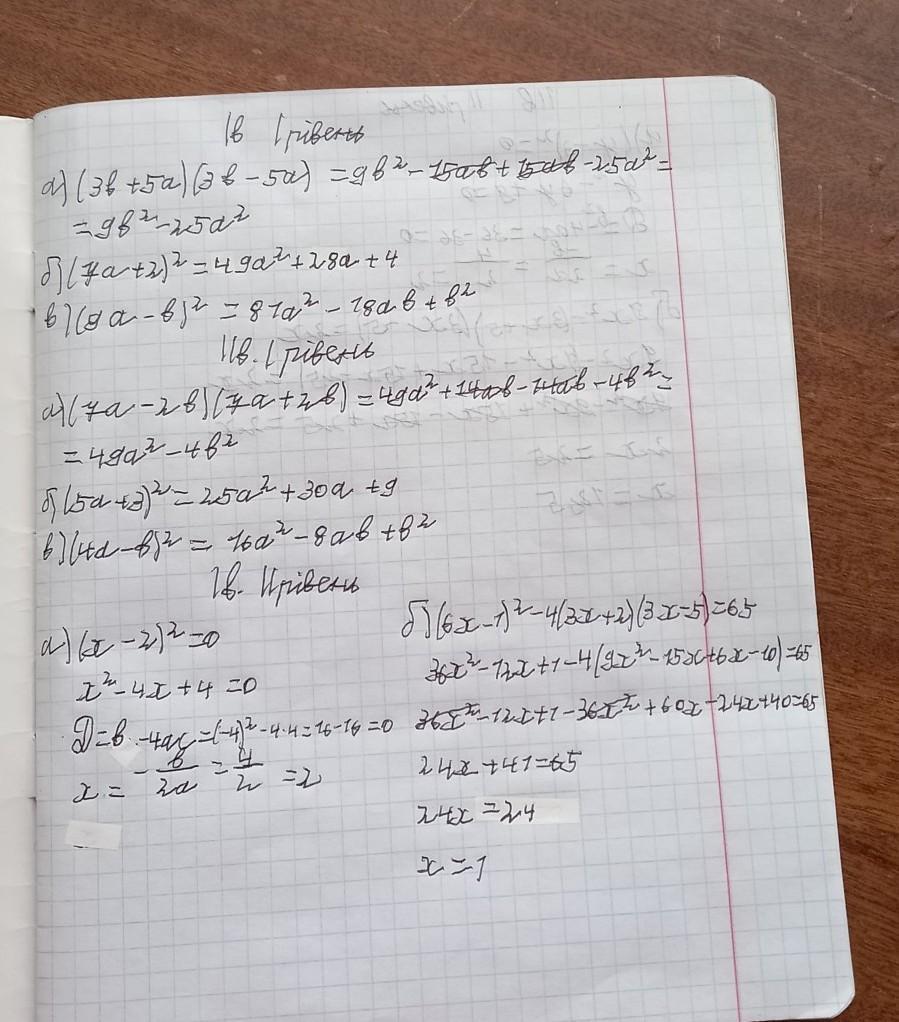 Iв Iрівень
а) (3в+5а)(3в-5а) =9в²-15ав+15ав-25а²=
=9в²-25а²
б) (7а+2)²=49а²+28а+4
в) (9а-в)² = 81а²-18ав+в²
IIв. Iрівень
а) (7а-2в)(7а+2в)=49а²+14ав-14ав-4в²=
=49а²-4в²
б) (5а+3)²=25а²+30а+9
в) (4а-в)² = 16а²-8ав+в²
Iв. IIрівень
а) (x-2)²=0
x²-4x+4=0
D=в -4ac=(-4)²-4·4=16-16=0
x= -в/2а =4/2 =2
б) (6x-1)²-4(3x+2)(3x-5)=65
36x²-12x+1-4(9x²-15x+6x-10)=65
36x²-12x+1-36x²+60x-24x+40=65
24x+41=65
24x=24
x=1